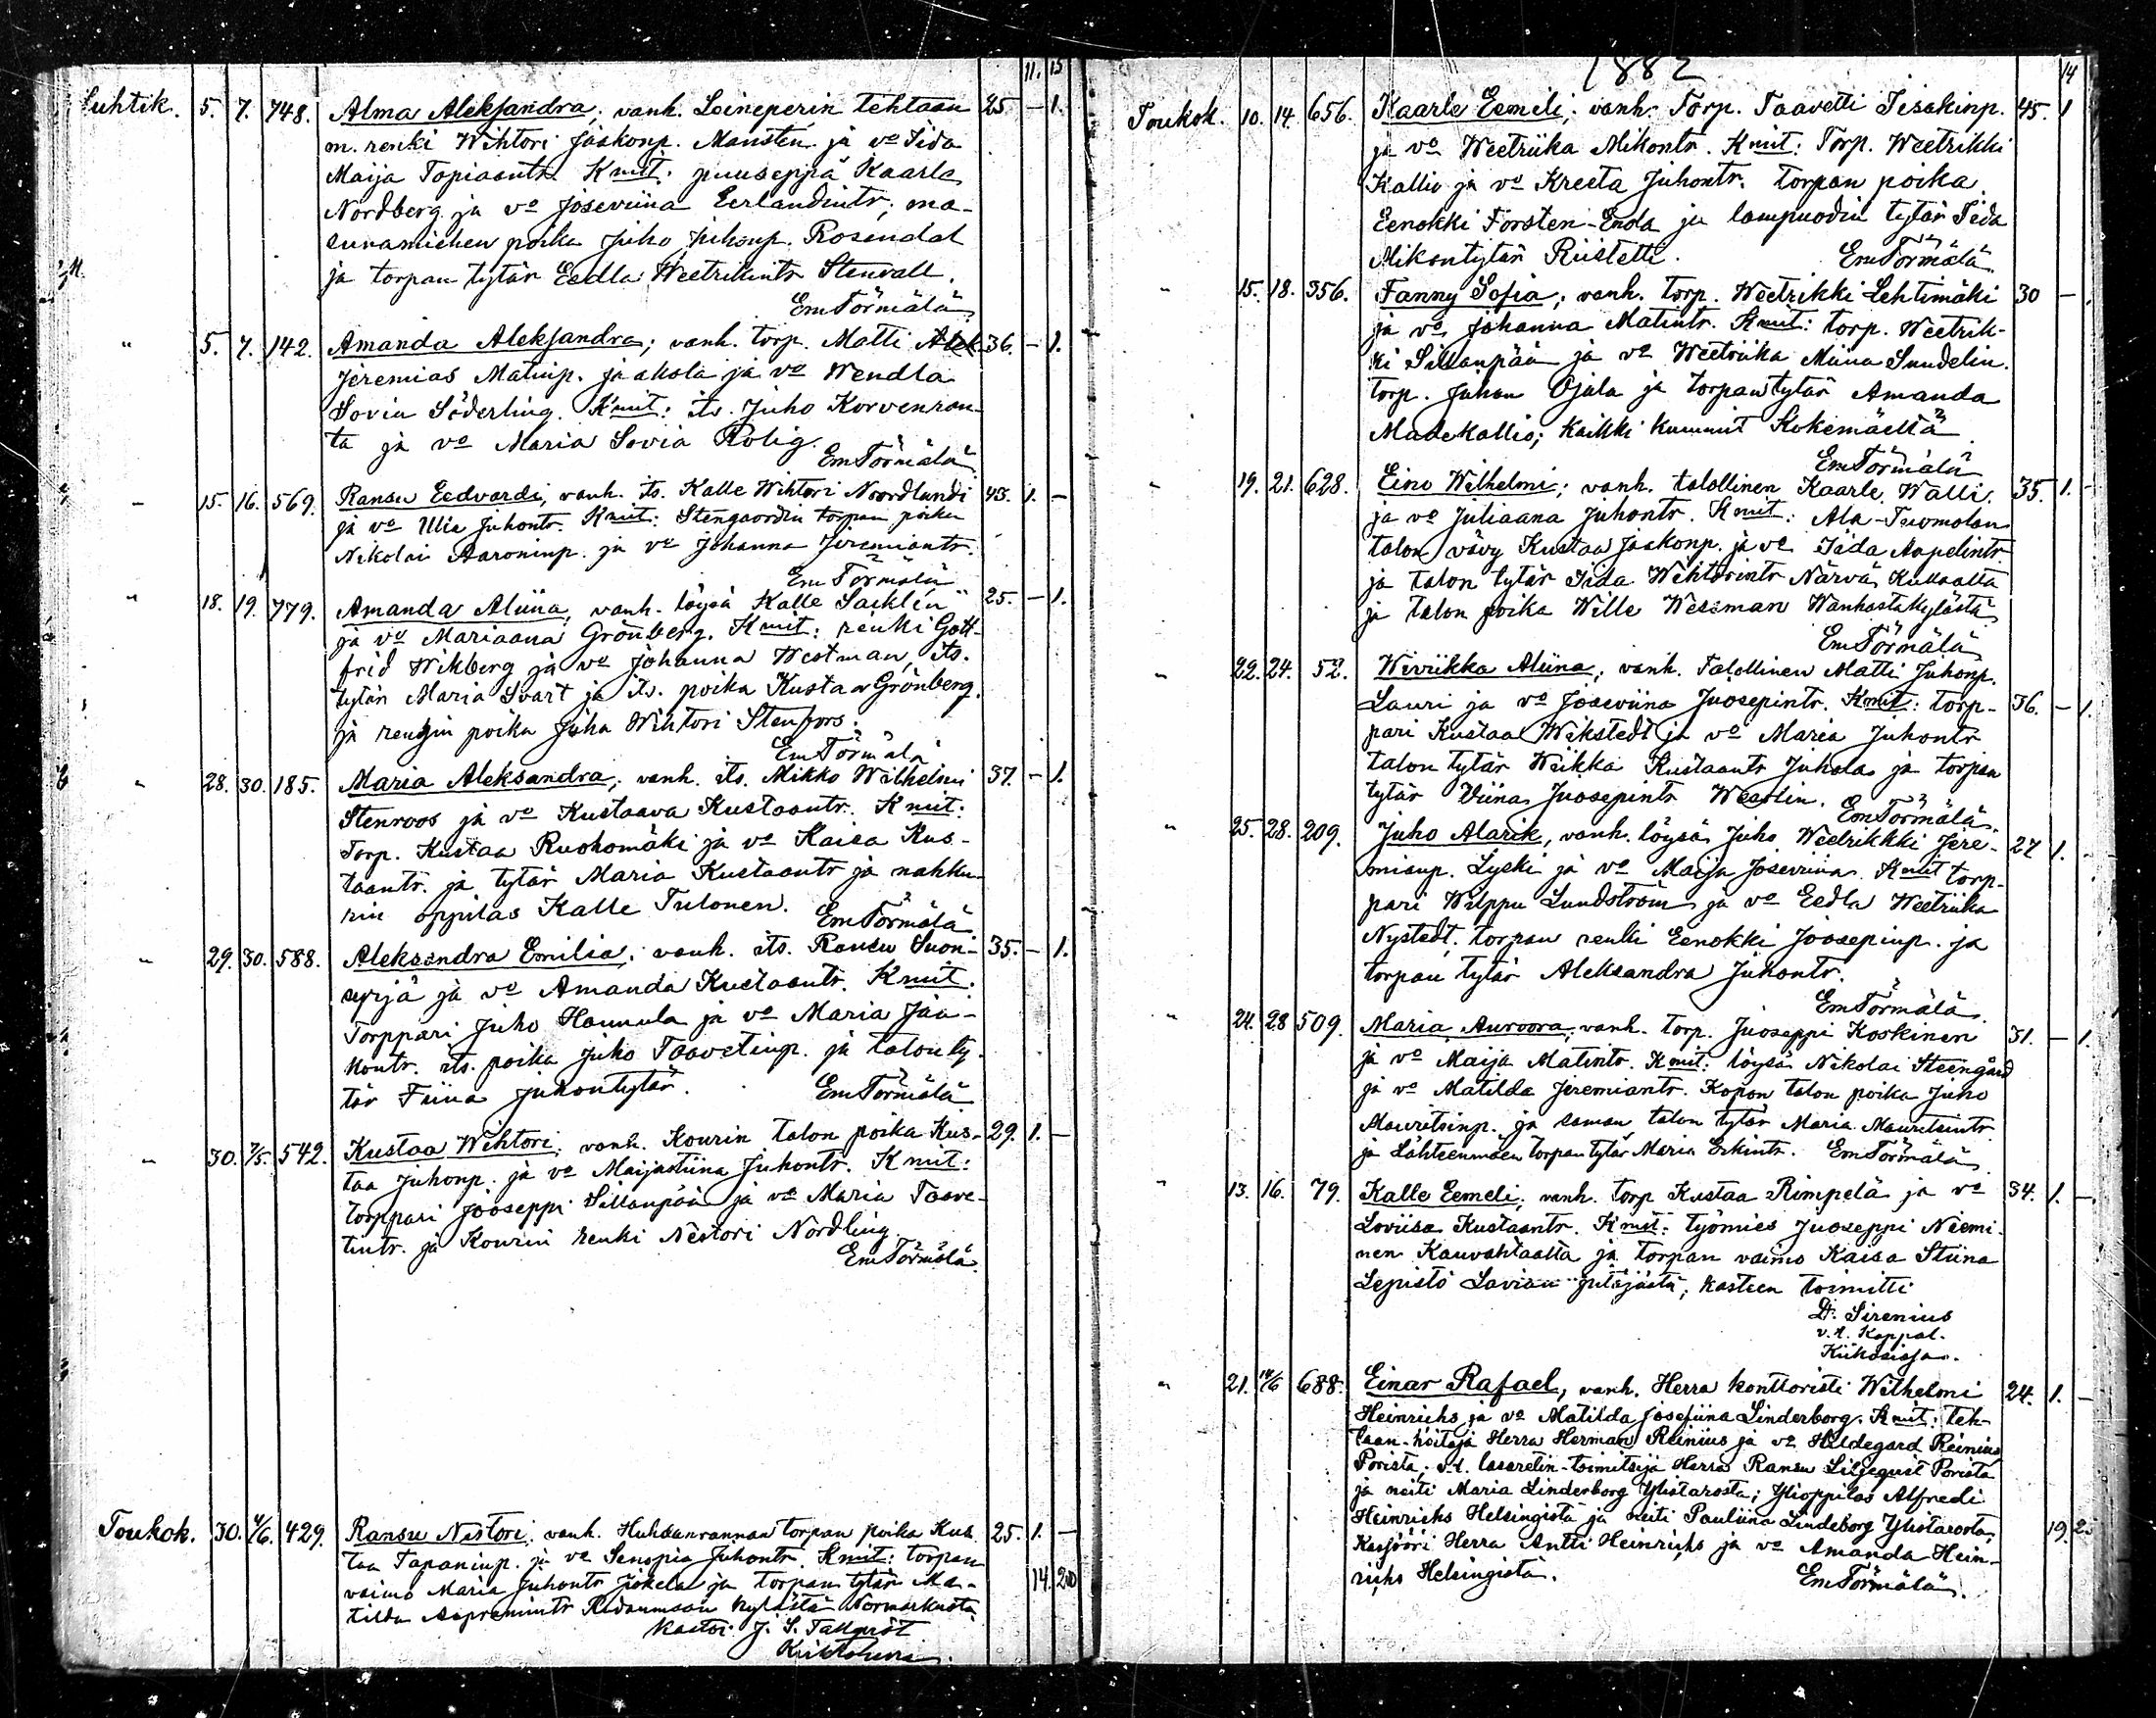 11. 15
Huhtik. 5. 7. 748. Alma Aleksandra; vanh. Leineperin tehtaan 25 — 1.
m. renki Wihtori Jaakonp. Mansten ja vo Iida
Maija Tapiaantr. Kmit: puuseppä Kaarle
Nordberg ja vo Joseviina Eerlandintr, ma-
suunamiehen poika Juho Juhonp. Rosendal
ja torpan tytär Eedla Weetrikintr Stenvall.
EmTörmälä
" 5. 7. 142. Amanda Aleksandra; vanh. torp. Matti 36. — 1.
Jeremias Matinp. Jaakola ja vo Wendla
Sovia Söderling. Kmit: its. Juho Korvenran-
ta ja vo Maria Sovia Rolig.
EmTörmälä
" 15. 16. 569. Ransu Eedvardi; vanh. its. Kalle Wihtori Noordlundi 43. 1. —
ja vo Ulla Juhontr. Kmit: Stengoordin torpan poika
Nikolai Aaroninp. ja vo Johanna Jeremiantr.
EmTörmälä
" 18. 19. 779. Amanda Aliina, vanh. löysä Kalle Sacklén 25. — 1.
ja vo Mariaana Grönberg. Kmit: renki Gott-
frid Wikberg ja vo Johanna Westman, its.
tytär Maria Svart ja its. poika Kustaa Grönberg.
ja rengin poika Juha Wihtori Stenfors.
EmTörmälä
" 28. 30. 185. Maria Aleksandra; vanh. its. Mikko Wilhelmi 37. — 1.
Stenroos ja vo Kustaava Kustaantr. Kmit:
Torp. Kustaa Ruohomäki ja vo Kaisa Kus-
taantr. ja tytär Maria Kustaantr ja nahku-
rin oppilas Kalle Tulonen. EmTörmälä
" 29. 30. 588. Aleksandra Emilia; vanh. its. Ransu Suoni- 35. — 1.
syrjä ja vo Amanda Kustaantr. Kmit.
Torppari Juho Hannula ja vo Maria Jaa-
kontr. its. poika Juho Taavetinp. ja talon ty-
tär Fiina Juhontytär. EmTörmälä
" 30. 7/5. 542. Kustaa Wihtori; vanh. Kourin talon poika Kus- 29. 1. —
taa Juhonp. ja vo Maijastiina Juhontr. Kmit:
torppari Jooseppi Sillanpää ja vo Maria Taave-
tintr. ja Kourin renki Nestori Nordling
EmTörmälä.
Toukok. 30. 4/6. 429. Ransu Nestori; vanh. Huhdanrannan torpan poika Kus 25. 1. —
taa Tapaninp. ja vo Senopia Juhontr. Kmit: torpan
vaimo Maria Juhontr Jokela ja torpan tytär Ma- 14. 20
tilda kylästä Normarkusta
kastoi J. S. Tallqvist
1882 14
Toukok. 10. 14. 656. Kaarle Eemeli; vanh. Torp. Taavetti Iisakinp. 45. 1
ja vo Weetriika Mikontr. Kmit: Torp. Weetrikki
Kallio ja vo Kreeta Juhontr. torpan poika
Eenokki Forsten-Enola ja lampuodin tytär Iida
Mikontytär Riistetti. EmTörmälä
" 15. 18. 356. Fanny Sofia; vanh. torp. Weetrikki Lehtimäki 30 — 1.
ja vo Johanna Matintr. Kmit: torp. Weetrik-
ki Sillanpää ja vo Weetriika Miina Sundelin.
torp. Juhan Ojala ja torpan tytär Amanda
Madekallio; kaikki kummit Kokemäeltä.
EmTörmälä
" 19. 21. 628. Eino Wilhelmi; vanh. talollinen Kaarle Walli 35. 1. -
ja vo Juliaana Juhontr. Kmit: Ala-Tuomolan
talon vävy Kustaa Jaakonp. ja vo Iida Aapelintr
ja talon tytär Iida Wihtorintr Närvä Kullaalta
ja talon poika Wille Wessman Wanhastakylästä
EmTörmälä
" 22. 24. 52. Wiviikka Aliina; vanh. Talollinen Matti Juhonp.
Lauri ja vo Joseviina Juosepintr. Kmit: torp- 36. — 1.
pari Kustaa Wikstedt ja vo Maria Juhontr
talon tytär Wiikka Kustaantr Juhola ja torpan
tytär Viina Juosepintr Westlin. EmTörmälä.
" 25. 28. 209. Juho Alarik, vanh. löysä Juho Weetrikkki Jere- 27 1. -
mianp. Lyski ja vo Maija Joseviina. Kmit torp-
pari Wilppu Lundström ja vo Eedla Weetriika
Nystedt, torpan renki Eenokki Joosepinp. ja
torpan tytär Aleksandra Juhontr.
EmTörmälä.
" 24. 28 509. Maria Auroora; vanh. torp. Juoseppi Koskinen 31. — 1.
ja vo Maija Matintr. Kmit: löysä Nikolai Steengård
ja vo Matilda Jeremiantr. Kopon talon poika Juho
Mauritsinp. ja saman talon tytär Maria Mauritsintr
ja Lähteenmäen torpan tytär Maria Erkintr. EmTörmälä
" 13. 16. 79. Kalle Eemeli; vanh. torp Kustaa Rimpelä ja vo 34. 1. —
Loviisa Kustaantr. Kmit: työmies Juoseppi Niemi-
nen Kauvahtaalta ja torpan vaimo Kaisa Stiina
Lepistö Lavian pitäjästä; kasteen toimitti
D: Sirenius
v.t. Kappal.
Kiikoisissa.
" 21. 14/6 688. Einar Rafael, vanh. Herra konttoristi Wilhelmi 24. 1. —
Heinrichs ja vo Matilda Josefiina Linderborg. Kmit: teh-
taan-hoitaja Herra Herman Reinius ja vo Hildegard Reinius
Porista; v.t. lasaretin-toimitsija Herra Ransu Liljeqvist Porista
ja neiti Maria Linderborg Ylistarosta; Ylioppilas Alfredi
Heinrichs Helsingistä ja neiti Pauliina Lindeborg Ylistarosta,
Kasjööri Herra Antti Heinrichs ja vo Amanda Hein- 19. 25
richs Helsingistä. EmTörmälä.